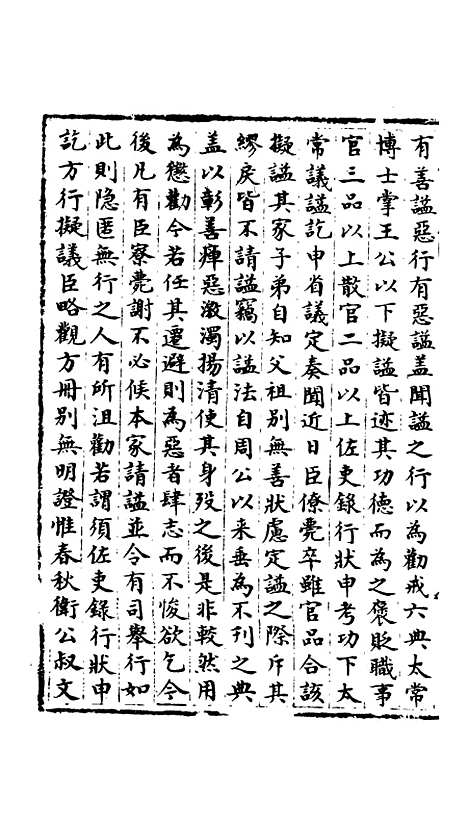 有善謚惡行有惡謚盖聞謚之行以為勸戒六典太常
博士掌王公以下擬謚皆迹其功德而為之褒貶職事
官三品以上散官二品以上佐吏錄行狀申考功下太
常議謚訖申省議定奏聞近日臣僚薨卒雖官品合該
擬謚其家子弟自知父祖別無善狀慮定謚之際斥其
繆戾皆不請謚竊以謚法自周公以來垂為不刊之典
盖以彰善癉惡激濁揚清使其身歿之後是非較然用
為懲勸今若任其遷避則為惡者肆志而不悛欲乞今
後凡有臣寮薨謝不必候本家請謚並令有司舉行如
此則隐匿無行之人有所沮勸若謂須佐吏錄行狀申
訖方行擬議臣略觀方冊別無明證惟春秋衛公叔文